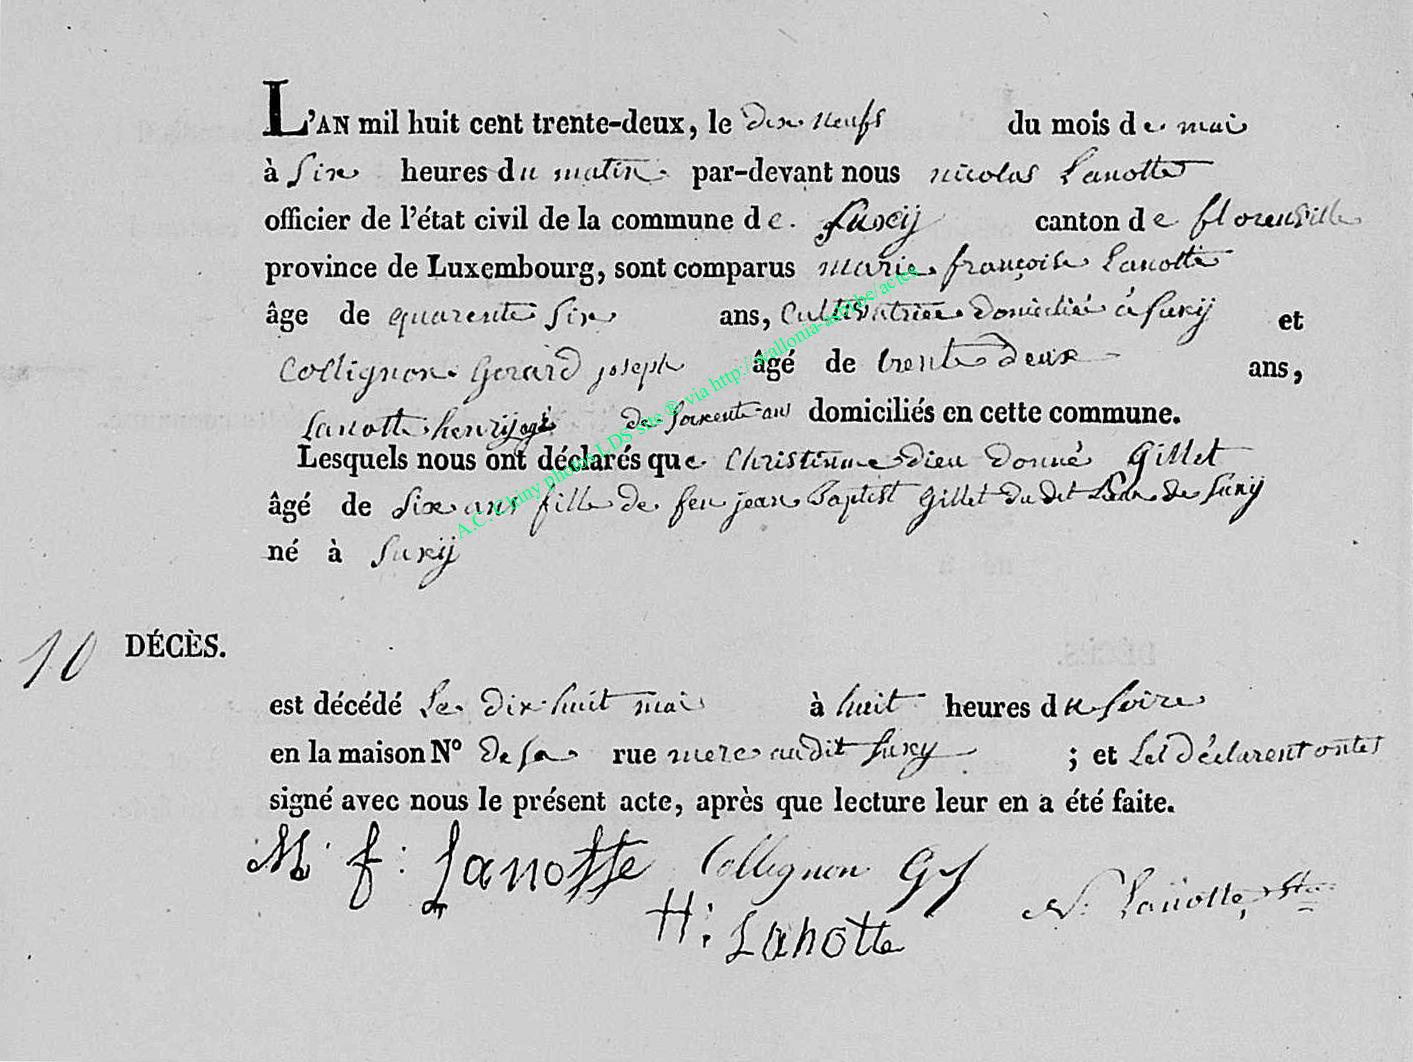 L'AN mil huit cent trente-deux, le dix neufs du mois de mai
à Six heures du matin par-devant nous nicolas Lanotte
officier de l'état civil de la commune de Suxij canton de florenville
province de Luxembourg, sont comparus marie françoise Lanotte
âge de quarente Six ans, Cultivatrice domiciliée à Suxij et
Collignon Gerard joseph âgé de trente deux ans,
Lanotte henrij agé de soixente ans domiciliés en cette commune.
Lesquels nous ont déclarés que Christinne dieu donné Gillet
âgé de Six ans fille de feu jean Baptist Gillet du dit de Suxij
né à Suxij
10 DÉCÈS.
est décédé Le dix huit mai à huit heures du soire
en la maison N° de sa rue mere au dit Suxy ; et Les déclarent ontes
signé avec nous le présent acte, après que lecture leur en a été faite.
M. f: Lanotte Collignon G J
H: Lanotte N. Lanotte,
A.C. Chiny photos LDS site ® via http://wallonia-asbl.be/actes